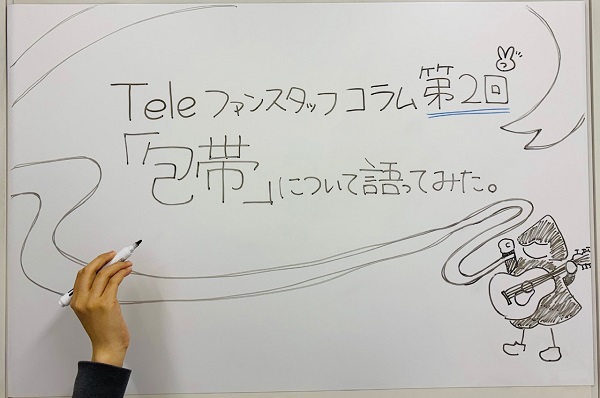 Tele ファンスタッフコラム第2回
「包帯」について語ってみた。